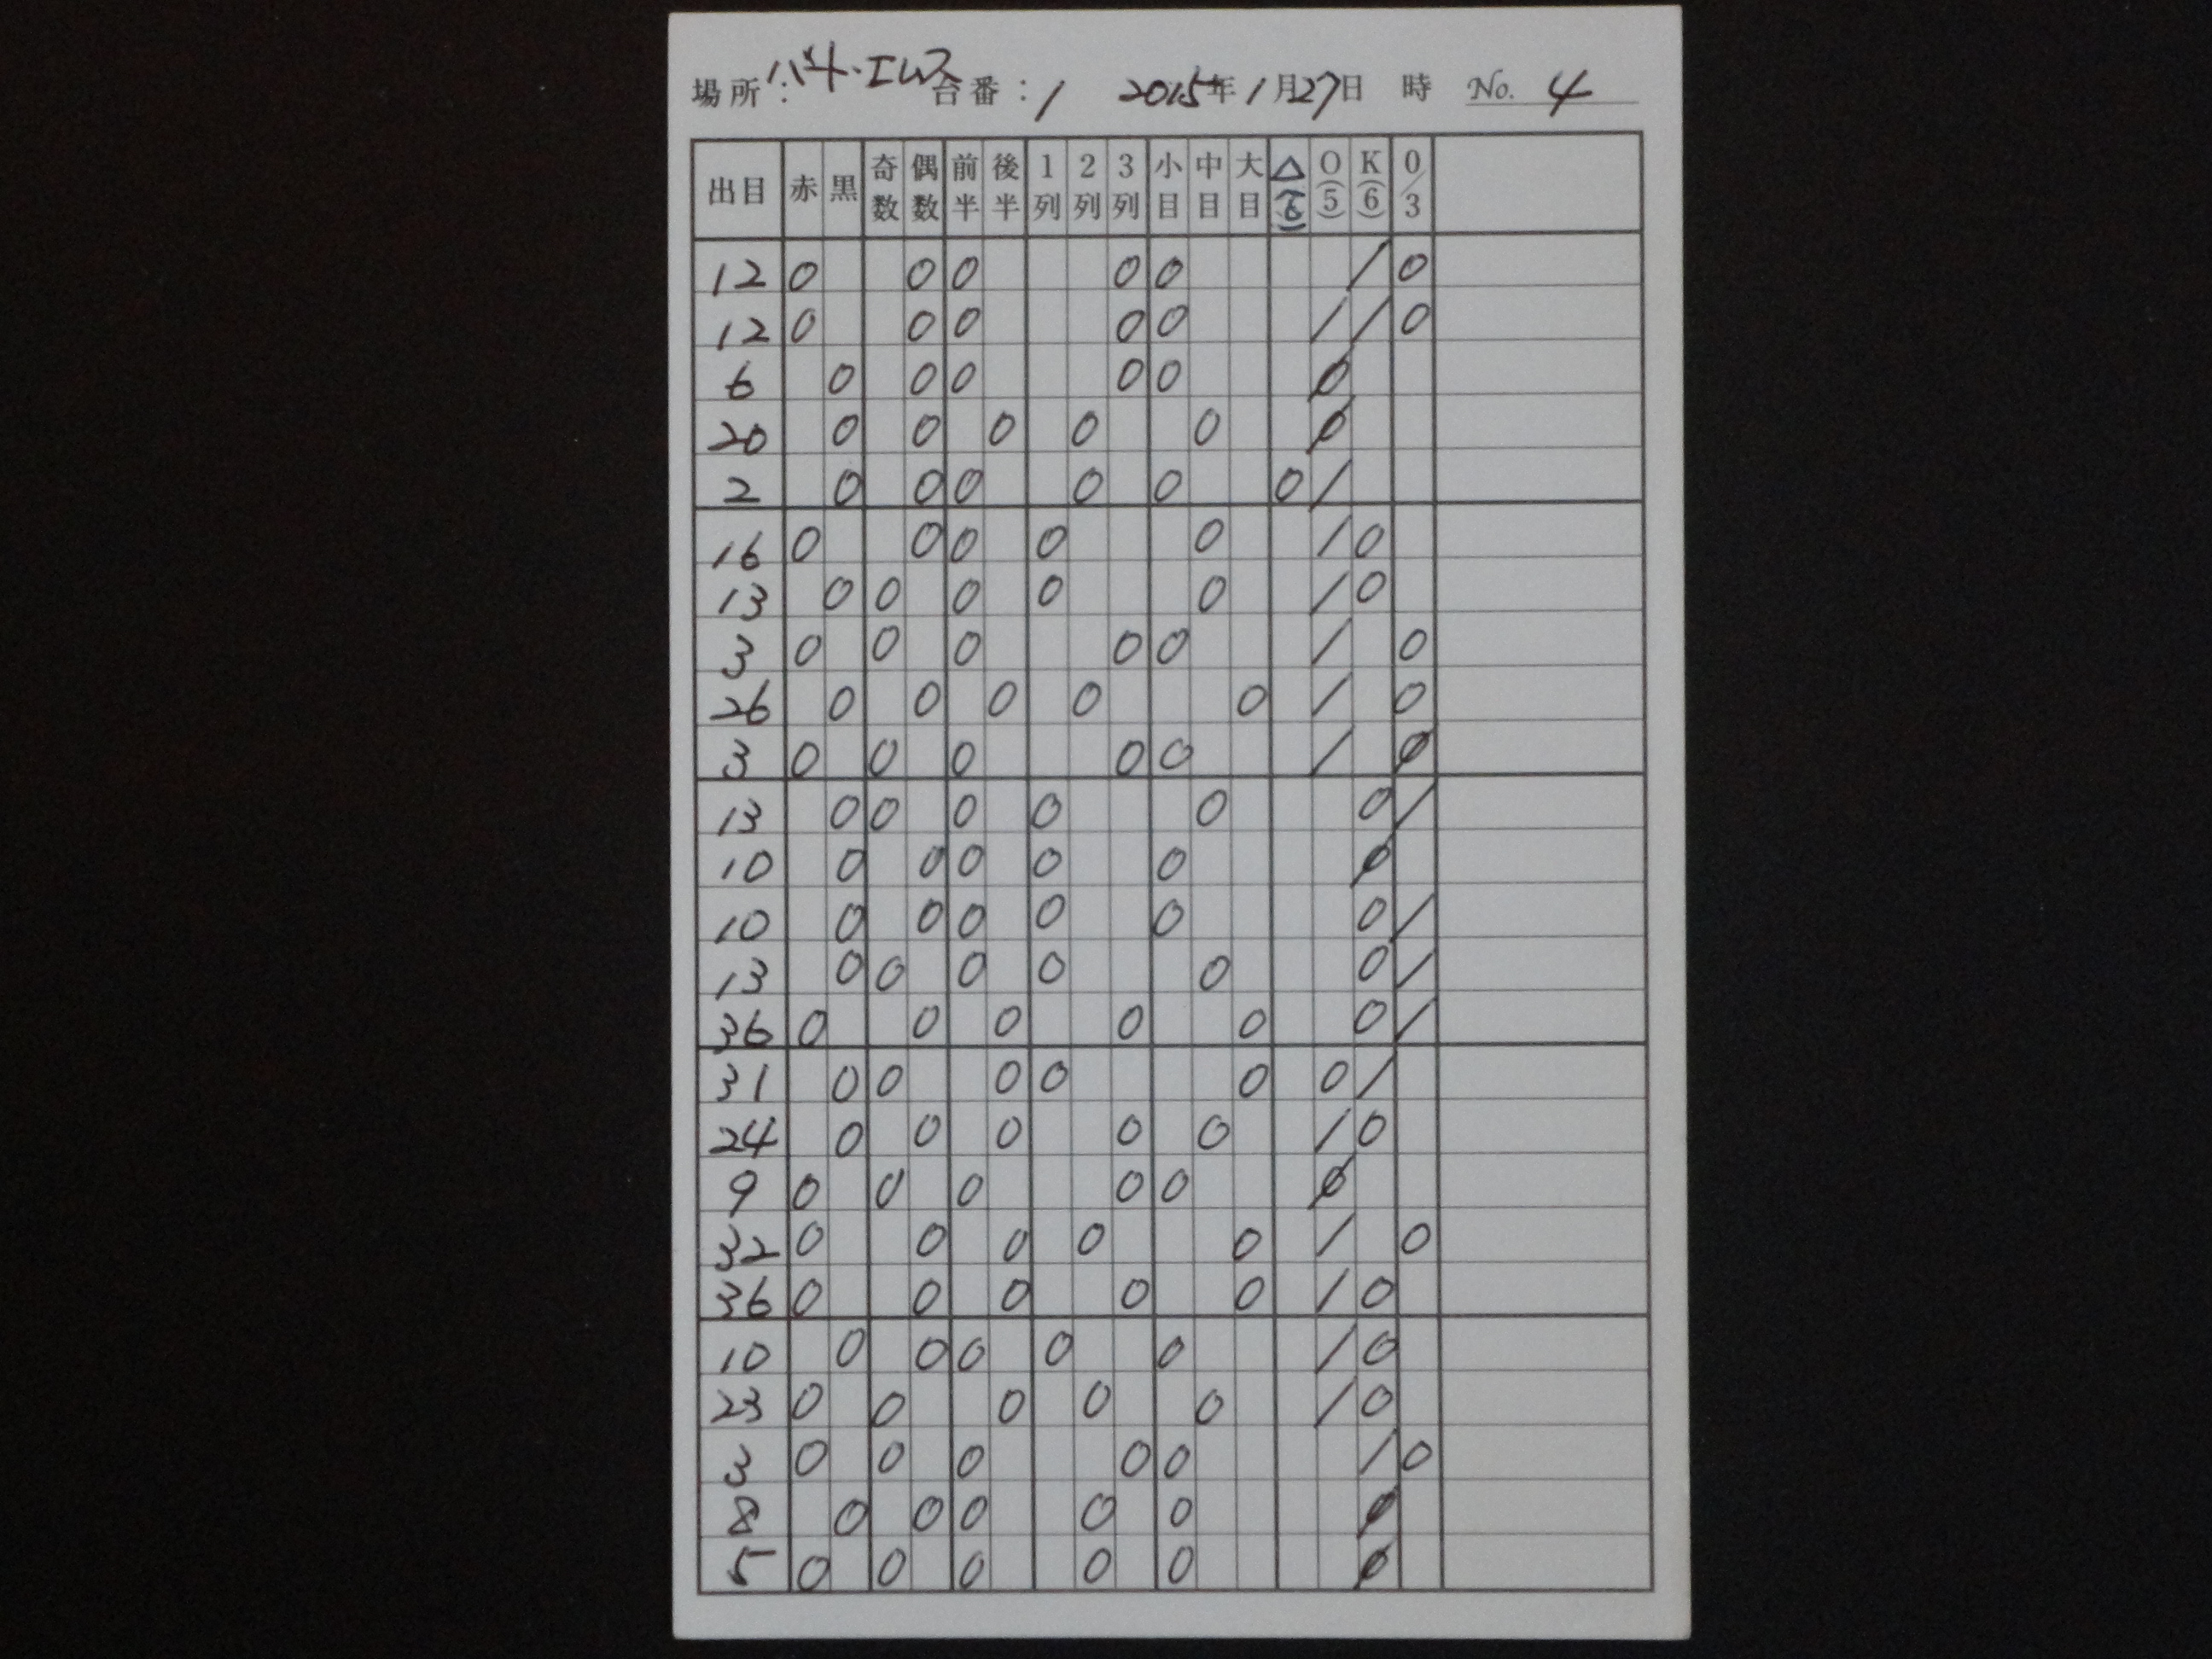 場所：バート・エムス 台番：1 2015年1月27日 時 No. 4
出目 赤 黒 奇数 偶数 前半 後半 1列 2列 3列 小目 中目 大目 △(6) O(5) K(6) 0/3
12 0 0 0 0 0 / 0
12 0 0 0 0 0 / / 0
6 0 0 0 0 0 Ø
20 0 0 0 0 0 Ø
2 0 0 0 0 0 0 /
16 0 0 0 0 0 / 0
13 0 0 0 0 0 / 0
3 0 0 0 0 0 / 0
26 0 0 0 0 0 / 0
3 0 0 0 0 0 / Ø
13 0 0 0 0 0 0 /
10 0 0 0 0 0 Ø
10 0 0 0 0 0 0 /
13 0 0 0 0 0 0 /
36 0 0 0 0 0 0 /
31 0 0 0 0 0 0 /
24 0 0 0 0 0 / 0
9 0 0 0 0 0 Ø
32 0 0 0 0 0 / 0
36 0 0 0 0 0 / 0
10 0 0 0 0 0 / 0
23 0 0 0 0 0 / 0
3 0 0 0 0 0 / 0
8 0 0 0 0 0 Ø
5 0 0 0 0 0 Ø